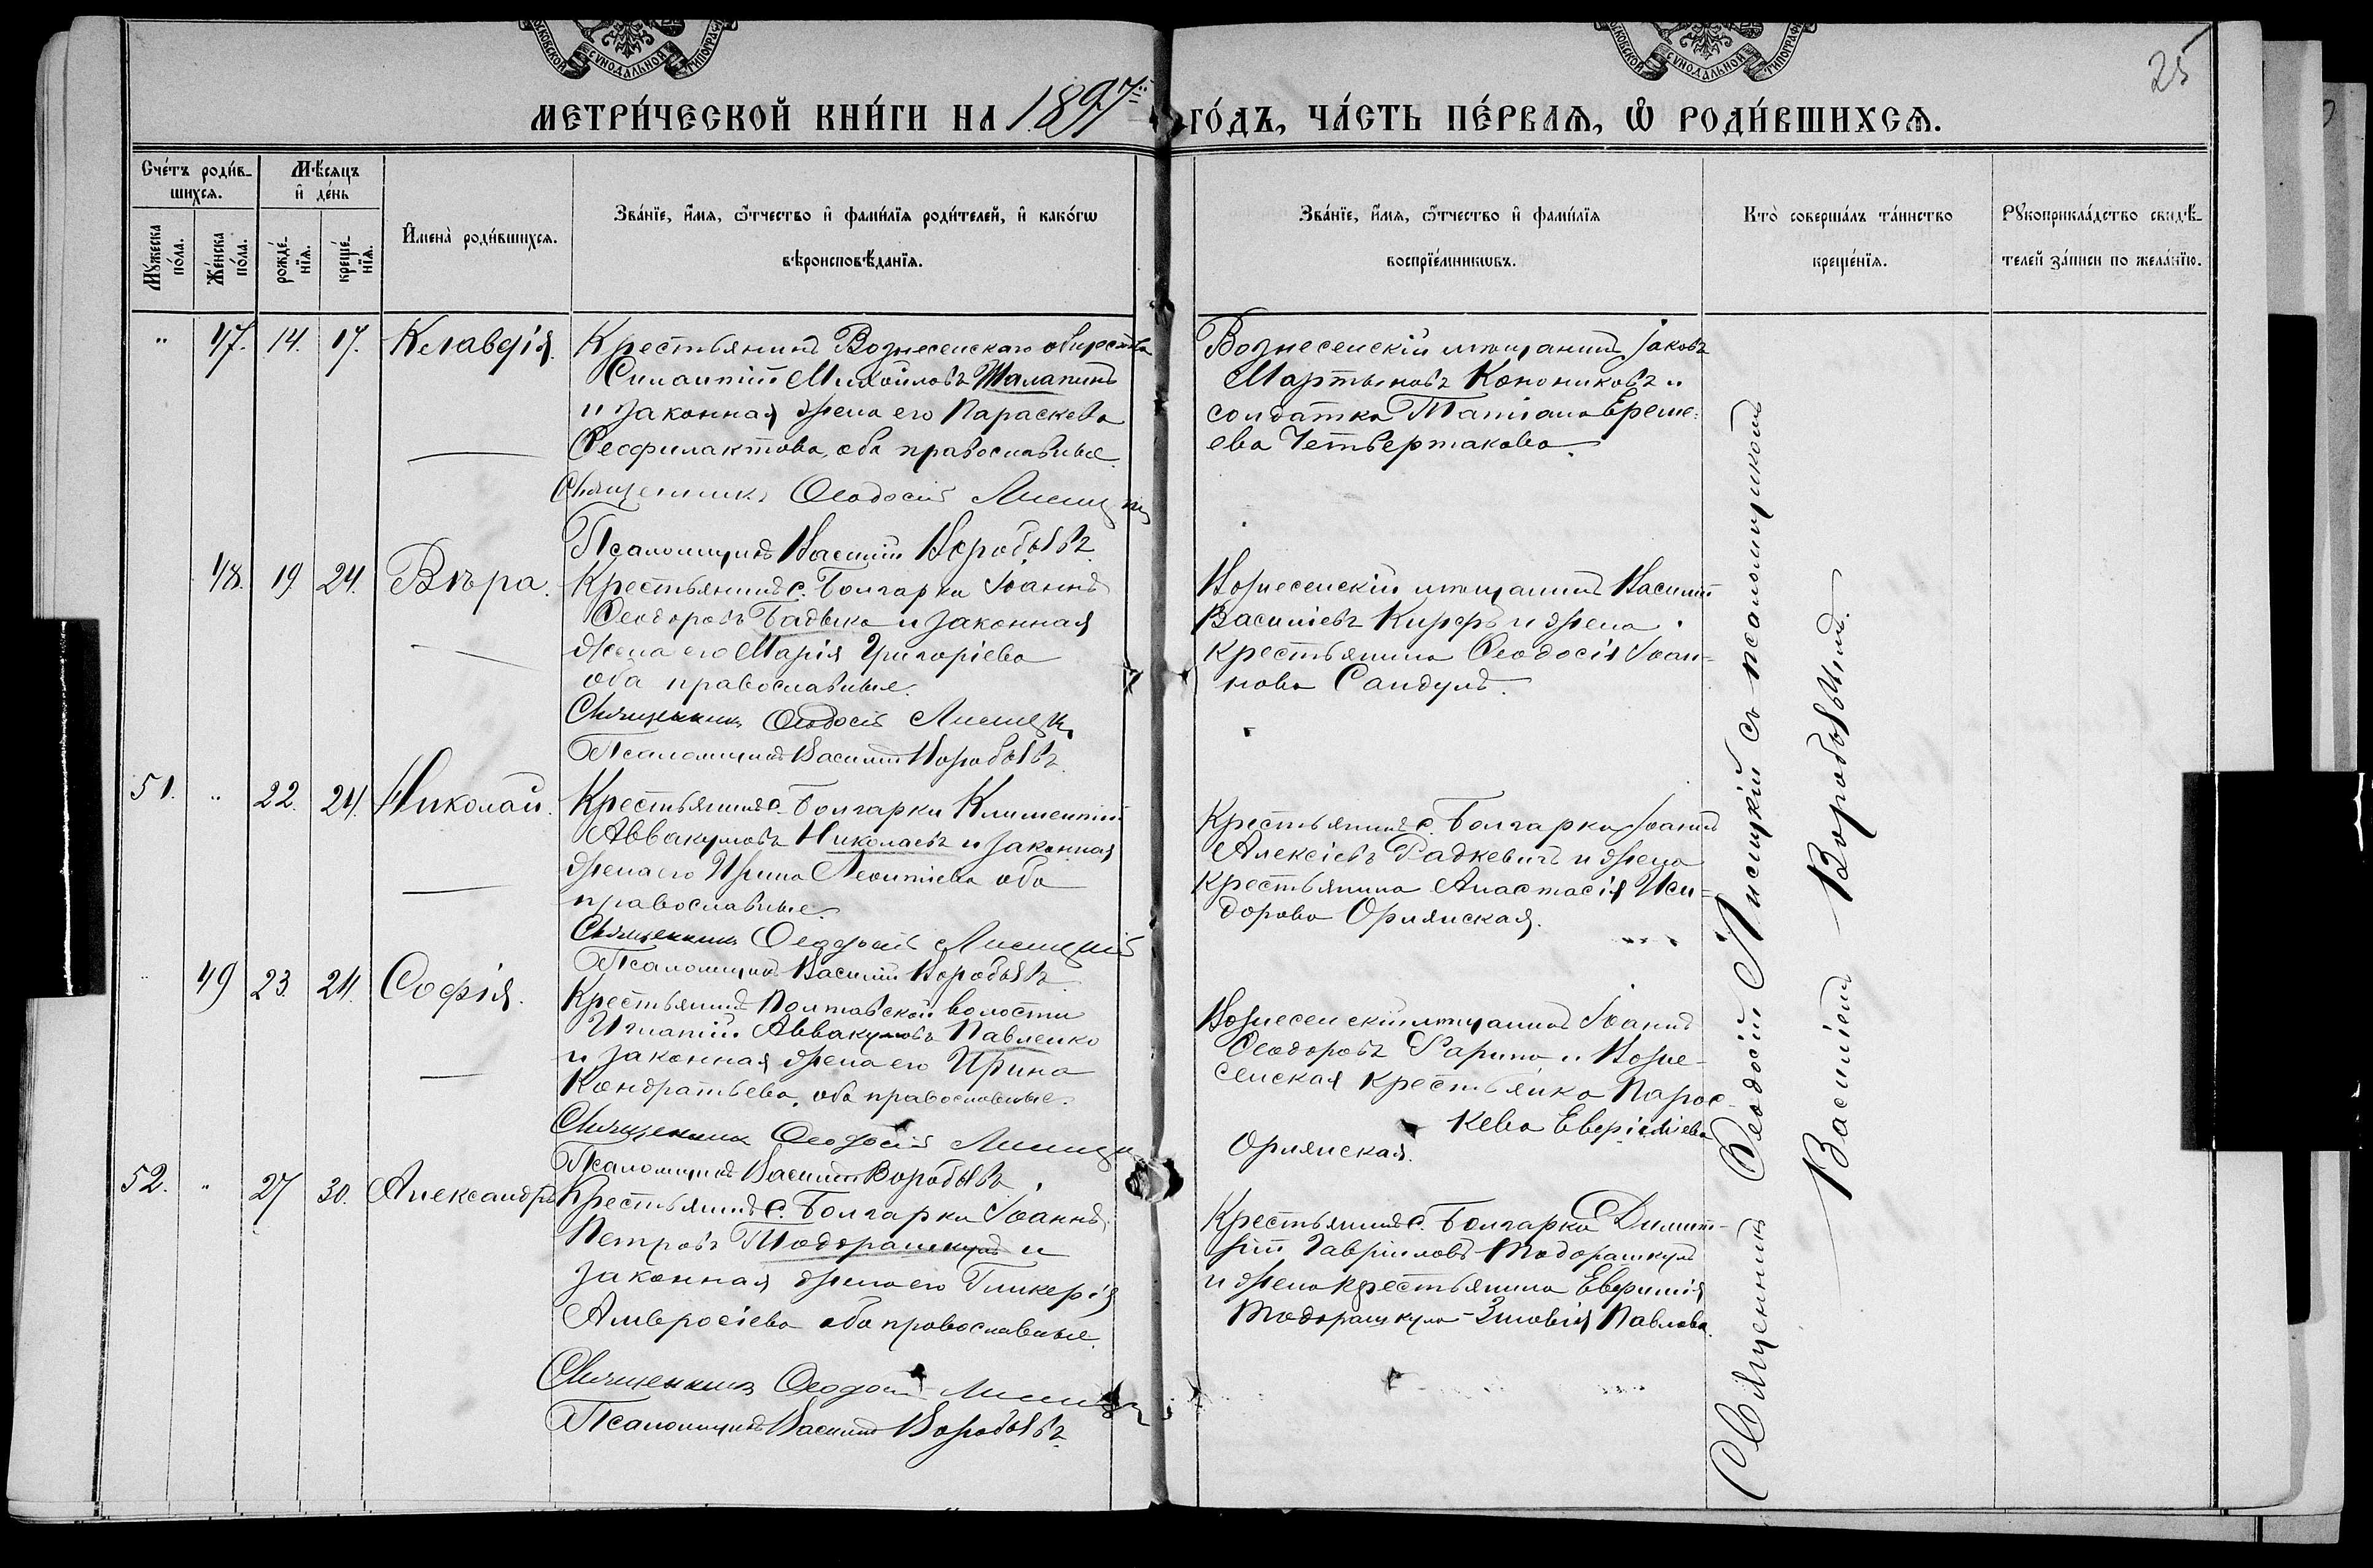 МОСКОВСКОЙ СѴНОДАЛЬНОЙ ТИПОГРАФ
МОСКОВСКОЙ СѴНОДАЛЬНОЙ ТИПОГРАФ
25
МЕТРИ́ЧЕСКОЙ КНИ́ГИ НА 1897й ГО́ДЪ, ЧА́СТЬ ПЕ́РВАѦ, Ѡ҆ РОДИ́ВШИХСѦ.
Сче́тъ роди́в-
шихся.
Мѣ́сяцъ
и҆ де́нь
Мꙋ́жеска
по́ла.
Же́нска
по́ла.
рожде́-
нїя.
креще́-
нїя.
И҆мена̀ роди́вшихся.
Зва́нїе, и҆́мя, ѻ҆́тчество и҆ фами́лїя роди́телей, и҆ како́гѡ
вѣроисповѣ́данїя.
Зва́нїе, и҆́мя, ѻ҆́тчество и҆ фами́лїя
воспрїе́мникѡвъ.
Кто̀ соверша́лъ та́инство
креще́нїя.
Рꙋкоприкла́дство свидѣ́-
телей за́писи по жела́нїю.
" 47. 14. 17. Клавдія.
Крестьянинъ Вознесенскаго общества
Силантій Михайловъ Талапинъ
и законная жена его Параскева
Феофилактова, оба православные.
Священникъ Ѳеодосій Лисицкій
Псаломщикъ Василій Воробьевъ
Вознесенскій мѣщанинъ Іаковъ
Мартыновъ Конониковъ и
солдатка Татіана Ереме-
ева Четвертакова.
48. 19 24. Вѣра.
Крестьянинъ с. Болгарки Іоаннъ
Ѳеодоровъ Бадыка и законная
жена его Марія Григоріева
оба православные.
Священникъ Ѳеодосій Лисицкій
Псаломщикъ Василій Воробьевъ
Вознесенскій мѣщанинъ Василій
Василіевъ и жена
крестьянина Ѳеодосія Іоан-
нова Сандулъ.
51. " 22. 24. Николай.
Крестьянинъ с. Болгарки Климентій
Аввакумовъ Николаевъ и законная
жена его Ирина Леонтіева оба
православные.
Священникъ Ѳеодосій Лисицкій
Псаломщикъ Василій Воробьевъ
Крестьянинъ с. Болгарки Іоаннъ
Алексіевъ Радкевичъ и жена
крестьянина Анастасія Иси-
дорова Орлянская.
" 49 23. 24. Софія.
Крестьянинъ Полтавской волости
Игнатій Аввакумовъ Павленко
и законная жена его Ирина
Кондратьева, оба православные.
Священникъ Ѳеодосій Лисицкій
Псаломщикъ Василій Воробьевъ
Вознесенскій мѣщанинъ Іоаннъ
Ѳеодоровъ и Возне-
сенская крестьянка Парас-
кева
Орлянская.
52. " 27 30. Александръ
Крестьянинъ с. Болгарки Іоаннъ
Петровъ Тодорашкулъ и
законная жена его Гликерія
Амвросіева оба православные.
Священникъ Ѳеодосій Лисицкій
Псаломщикъ Василій Воробьевъ
Крестьянинъ с. Болгарки Димит-
рій Гавріиловъ Тодорашкулъ
и жена крестьянина Евфимія
Тодорашкула - Зиновія Павлова.
Священникъ Ѳеодосій Лисицкій съ псаломщикомъ
Василіемъ Воробьевымъ.